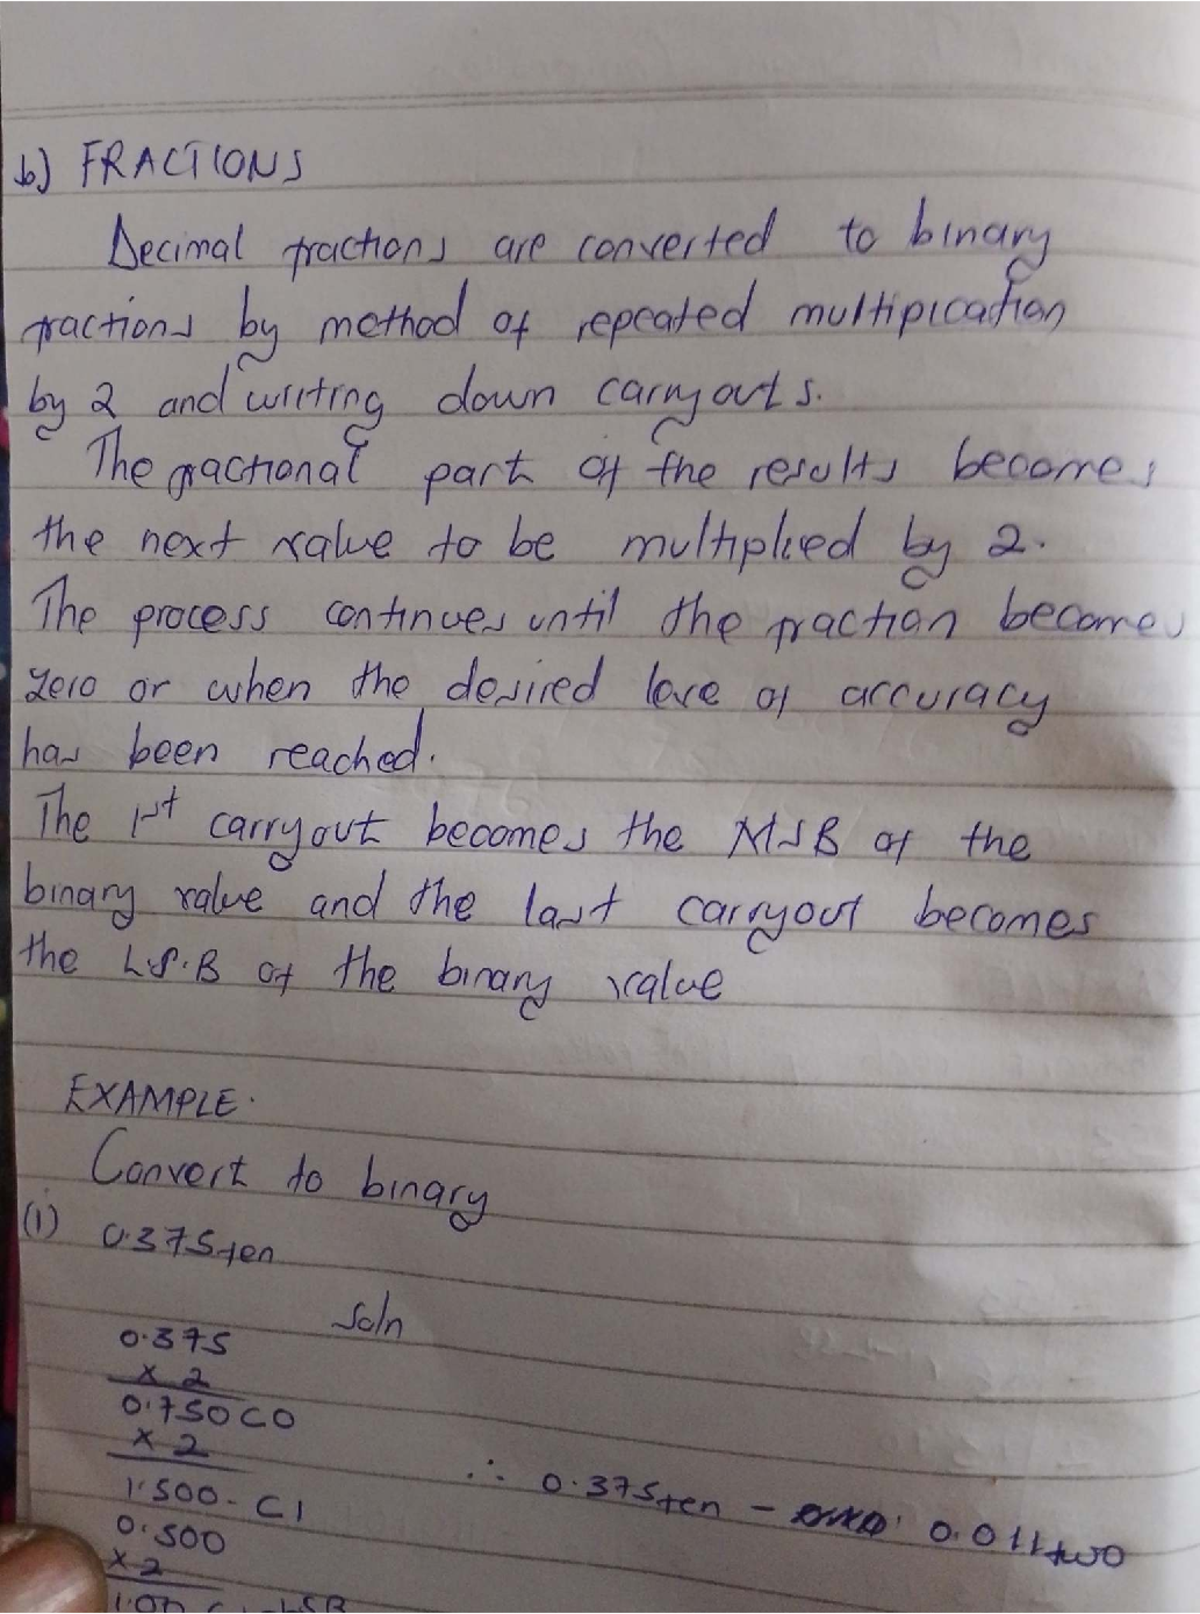 b) FRACTIONS
Decimal fractions are converted to binary
fractions by method of repeated multipication
by 2 and writing down carryouts.
The fractional part of the results becomes
the next value to be multiplied by 2.
The process continues until the fraction becomes
zero or when the desired leve of accuracy
has been reached.
The 1st carryout becomes the MSB of the
binary value and the last carryout becomes
the L.S.B of the binary value
EXAMPLE.
Convert to binary
(i) 0.375ten
Soln
0.375
x 2
0.750 C0
x 2
1.500 - C1
0.500
x 2
1.00 C1 LSB
∴ 0.375ten - 0.011two